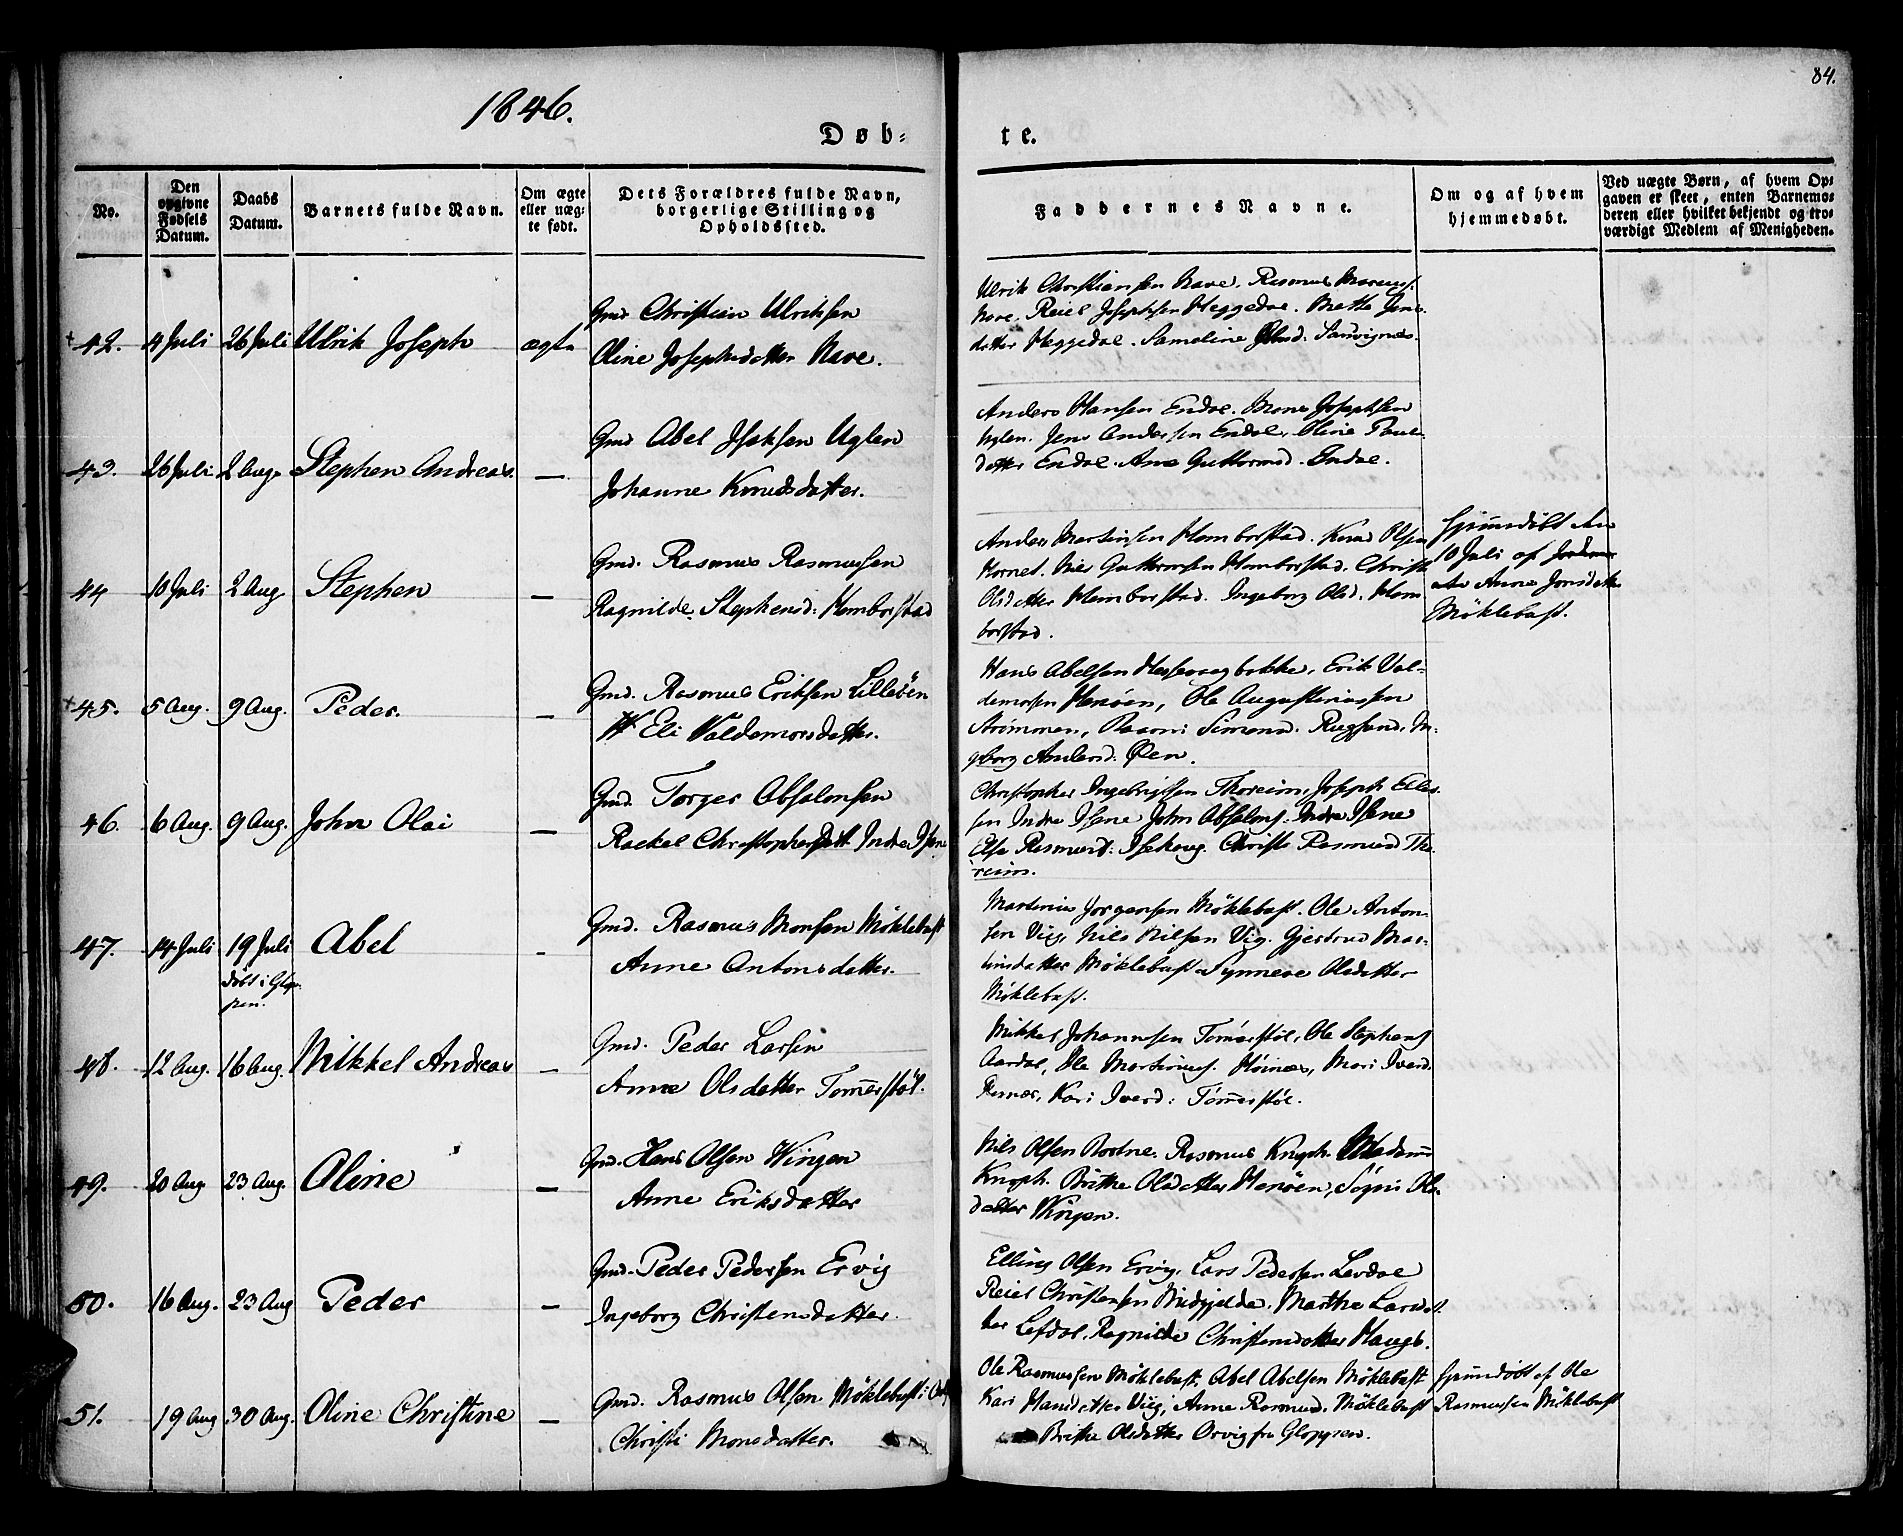 84.
1846.
Døb-
te.
No.
Den opgivne Fødsels Datum.
Daabs Datum.
Barnets fulde Navn.
Om ægte eller uægte født.
Dets Forældres fulde Navn, borgerlige Stilling og Opholdssted.
Faddernes Navne.
Om og af hvem hjemmedøbt.
Ved uægte Børn, af hvem Opgaven er skeet, enten Barnemoderen eller hvilket bekjendt og troværdigt Medlem af Menigheden.
42. 4 Juli 26 Juli Ulrik Joseph ægte
Gmd Christian Ulriksen
Oline Josephsdatter Nave.
Ulrik Christiansen Nave. Rasmus
Nave. Reiel Josephsen Heggedal. Mette Jens
datter Heggedal. Sameline Sandvignæs.
43. 26 Juli 2 Aug. Stephen Andreas. —
Gmd Abel Uglen
Johanne Knudsdatter.
Anders Hansen Endal. Mons Josephsen
Uglen. Jens Andersen Endal. Oline Poul-
datter Endal. Ane Guttormsd. Indal.
44 10 Juli 2 Aug. Stephen —
Gmd. Rasmus Rasmussen
Ragnilde Stephensd: Homborstad
Anders Martinsen Homborstad. Knud Olsen
Hornet. Nils Guttormsen Homborstad. Christi
Olsdatter Homborstad. Ingeborg Olsd. Hom
borstad.
hjemmedöbt den
10 Juli af
Anne Jonsdatter
Möklebust.
45. 5 Aug. 9 Aug. Peder. —
Gmd. Rasmus Eriksen Lilleöen
Eli Valdemorsdatter.
Hans Abelsen Hessevaagbakke, Erik Val-
demorsen Henöen, Ole Augustinussen
Strömmen, Simonsd. Rugsund. In-
geborg Andersd. Öen.
46. 6 Aug. 9 Aug. John Olai —
Gmd. Torger Absalonsen
Rackel Christophersdatt. Indre Isene
Christopher Ingebrigtsen Thoreim, Joseph Elles-
sen Indre Isene John Absalons. Indre Isene
Else Rasmusd: Christi Rasmusd Tho-
reim.
47. 14 Juli 19 Juli Abel -
döbt i Glop-
pen.
Gmd. Rasmus Monsen Möklebust
Anne Antonsdatter.
Martinus Jorgensen Möklebust. Ole Anton-
sen Viig, Nils Nilsen Vig. Gjertrud Mar-
tinsdatter Möklebust. Synneve Olsdatter
Möklebust.
48. 12 Aug. 16 Aug. Mikkel Andreas —
Gmd. Peder Larsen
Anne Olsdatter Tommerstöl.
Mikkel Johannesen Tommerstöl, Ole Stephens
Aardal, Ole Martinus. Höinæs, Mari Iversd.
Kari Iversd: Tömmerstöl.
49. 20 Aug 23 Aug. Oline —
Gmd. Hans Olsen Wingen
Anne Eriksdatter
Nils Olsen Rosdne. Rasmus Knoph. Madam
Knoph. Brithe Olsdatter Henöen, Ols-
datter Wingen.
50. 16 Aug. 23 Aug Peder —
Gmd. Peder Pedersen Ervig
Ingeborg Christensdatter.
Elling Olsen Ervig, Lars Pedersen Levdal
Reiel Christensen Marthe Larsdat-
ter Lefdal. Ragnilde Christensdatter Hauge.
51. 19 Aug 30 Aug. Oline Christine —
Gmd. Rasmus Olsen Möklebust
Christi Monsdatter.
Ole Rasmussen Möklebust. Abel Abelsen Möklebust
Kari Hansdatter Viig, Anne Rasmusd. Möklebust
Brithe Olsdatter Orvig fra Gloppen.
hjemmedöbt af Ole
Rasmussen Möklebust